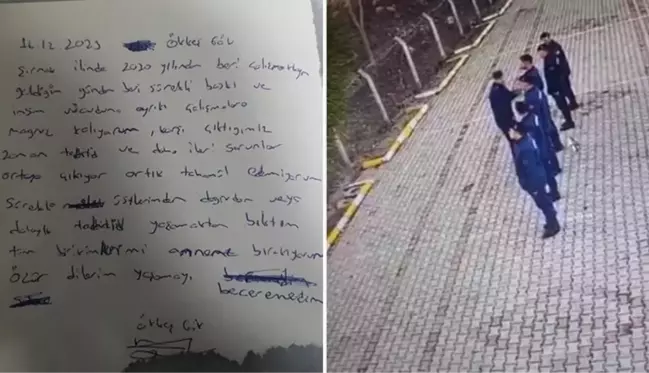 16.12.2023 Ökkeş Gök
Şırnak ilinde 2020 yılından beri çalışmaktayım
geldiğim günden beri sürekli baskı ve
insan vücuduna aykırı çalışmalara
maruz kalıyorum, karşı çıktığımız
zaman tehdid ve daha ileri sorunlar
ortaya çıkıyor artık tahamül edemiyorum
Sürekli üstlerimden doğrudan veya
dolaylı tehdid yaşamaktan bıktım
tüm birikimlerimi anneme bırakıyorum
Özür dilerim yaşamayı
beceremedim
Ökkeş Gök